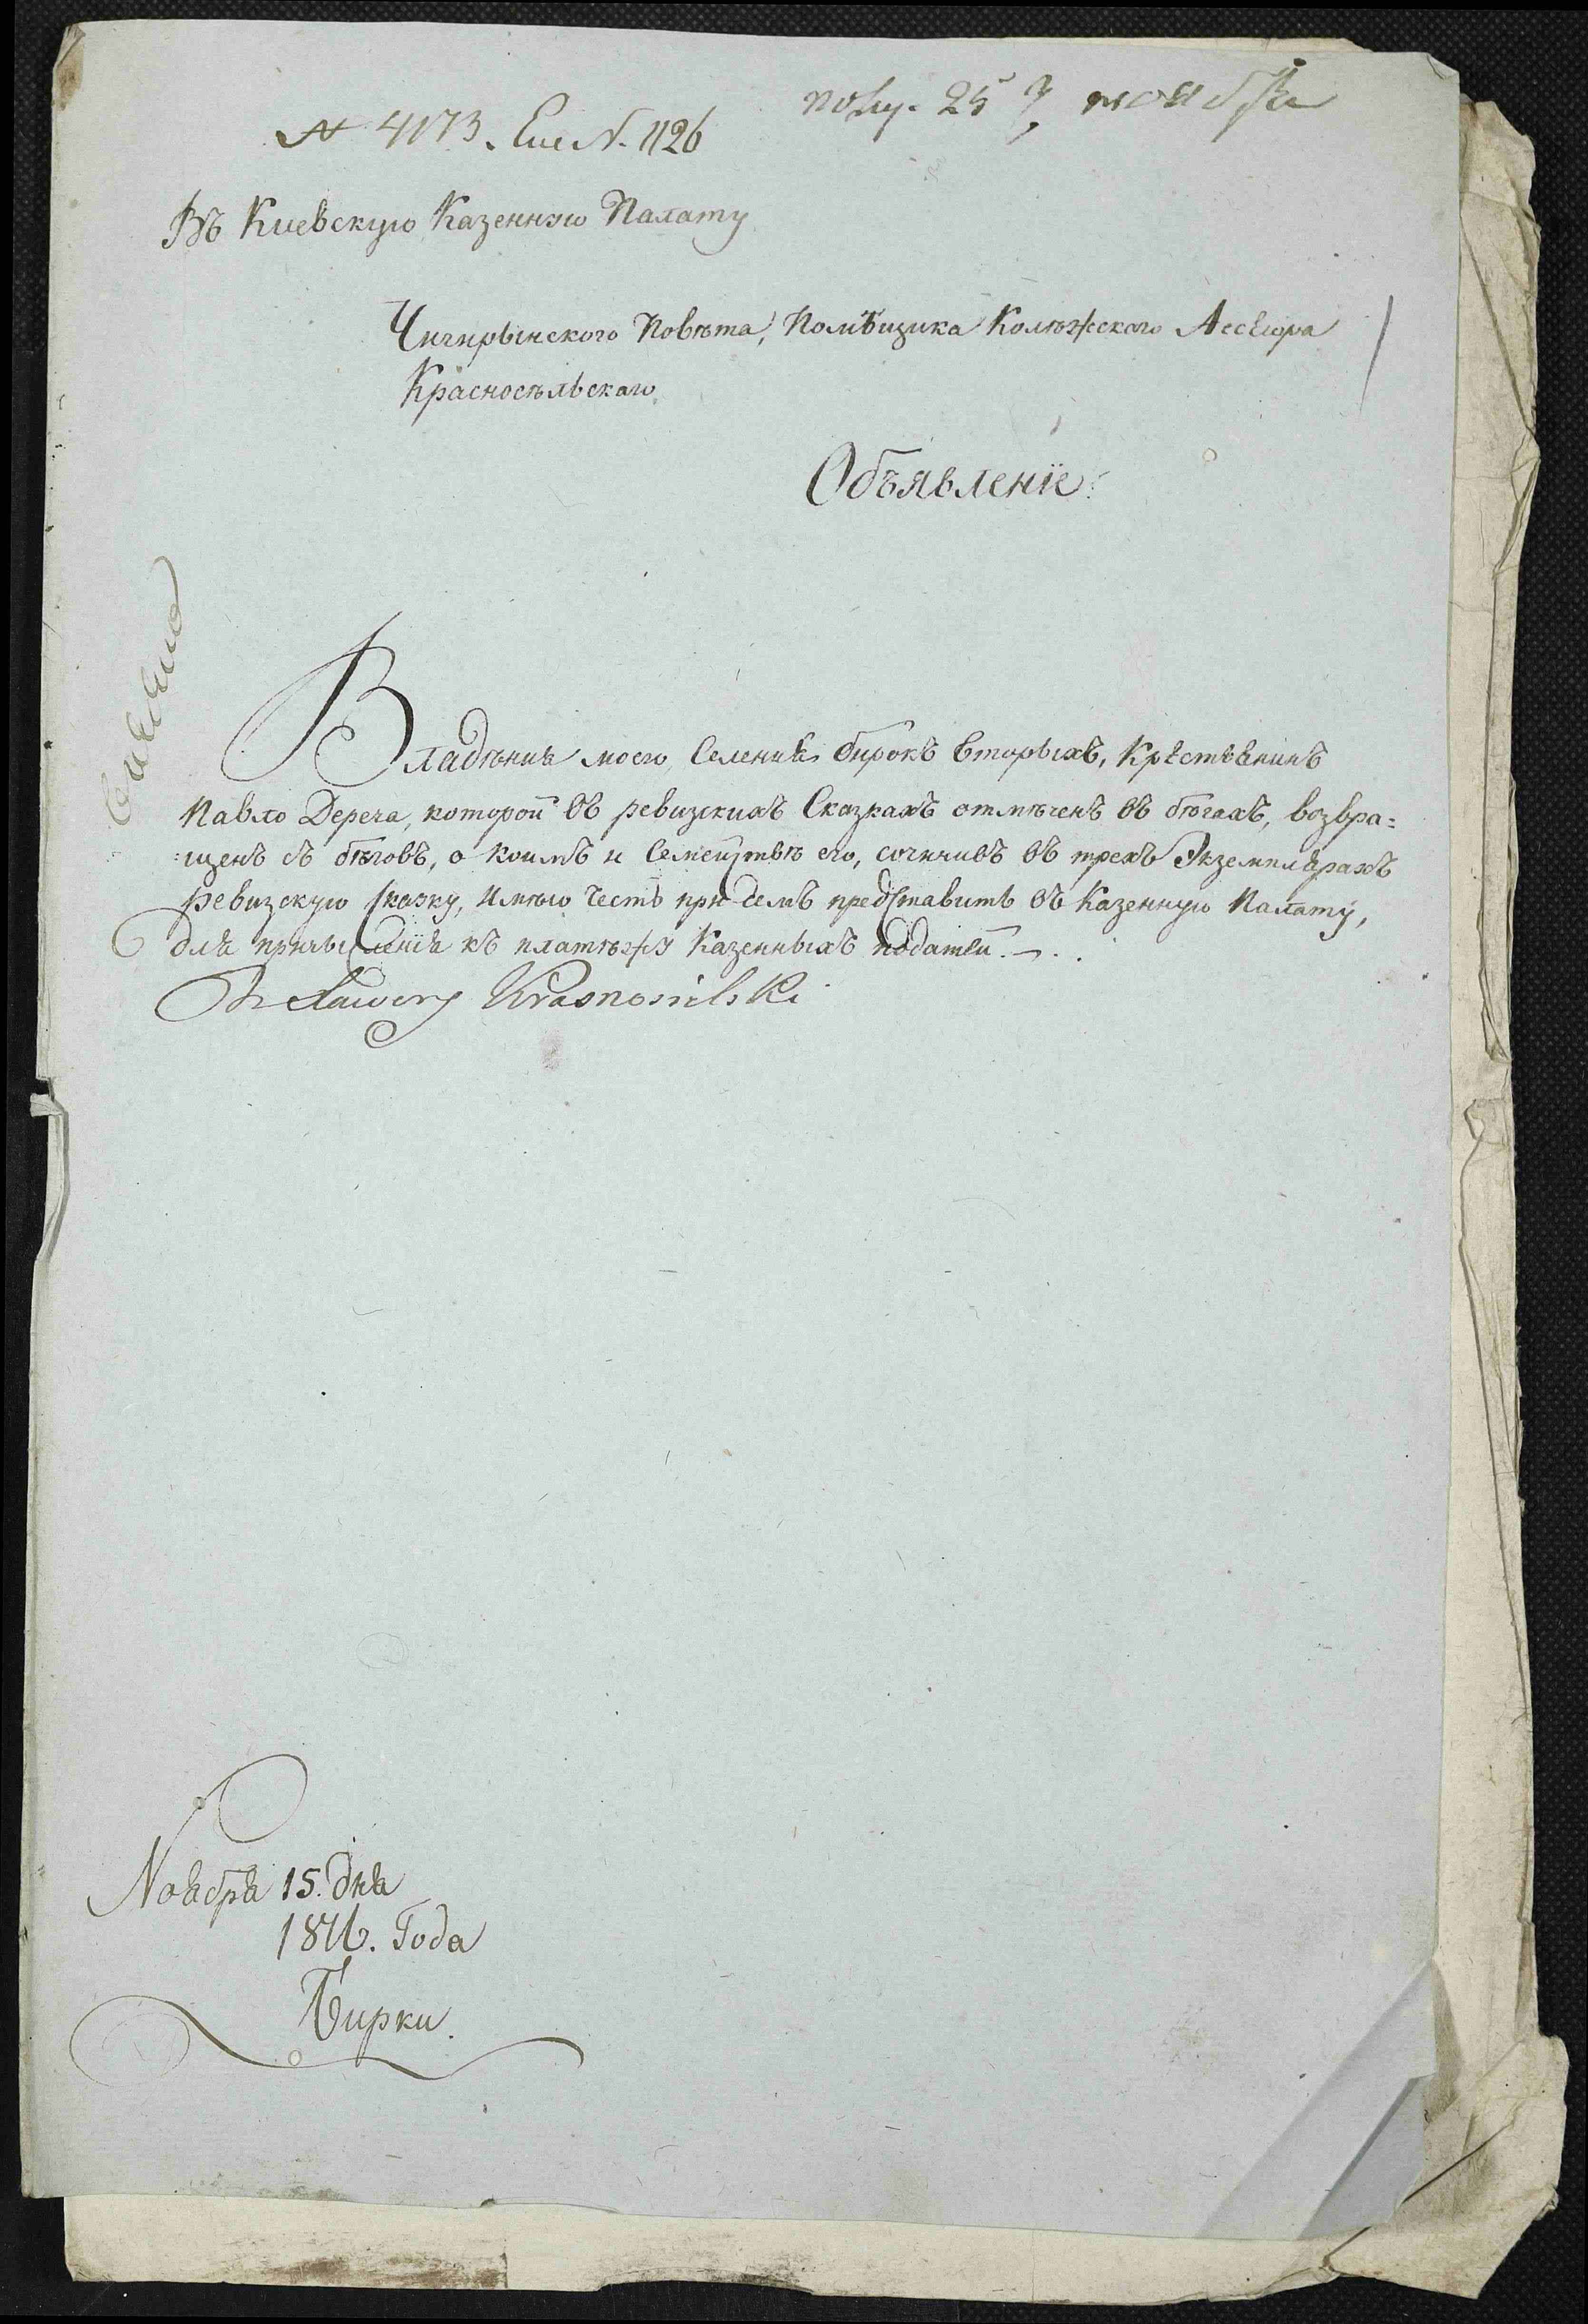 полу. 25 ноября
№ 4173. Еще N. 1126
Въ Киевскую Казенною Палату
Чигирынского Повѣта, Помѣщика Колѣжского Ассесора
Красносѣльскаго
Объявленіе
Владѣния моего, Селения бирокъ вторыхъ, Крестянинъ
Павло Дереча, которой въ ревизкихъ Сказкахъ отмѣченъ въ бѣгахъ, возвра=
=щенъ съ бѣговъ, о коимъ и Семействѣ его, сочинивъ въ трехъ Экземплярахъ
ревизскую сказку, Имѣю честь при семъ представить въ Казенную Палату,
для причысленія къ платѣжу Казенныхъ податей.
Xawery Krasnosielski
Ноября 15. дня
1816. Года
Бирки.